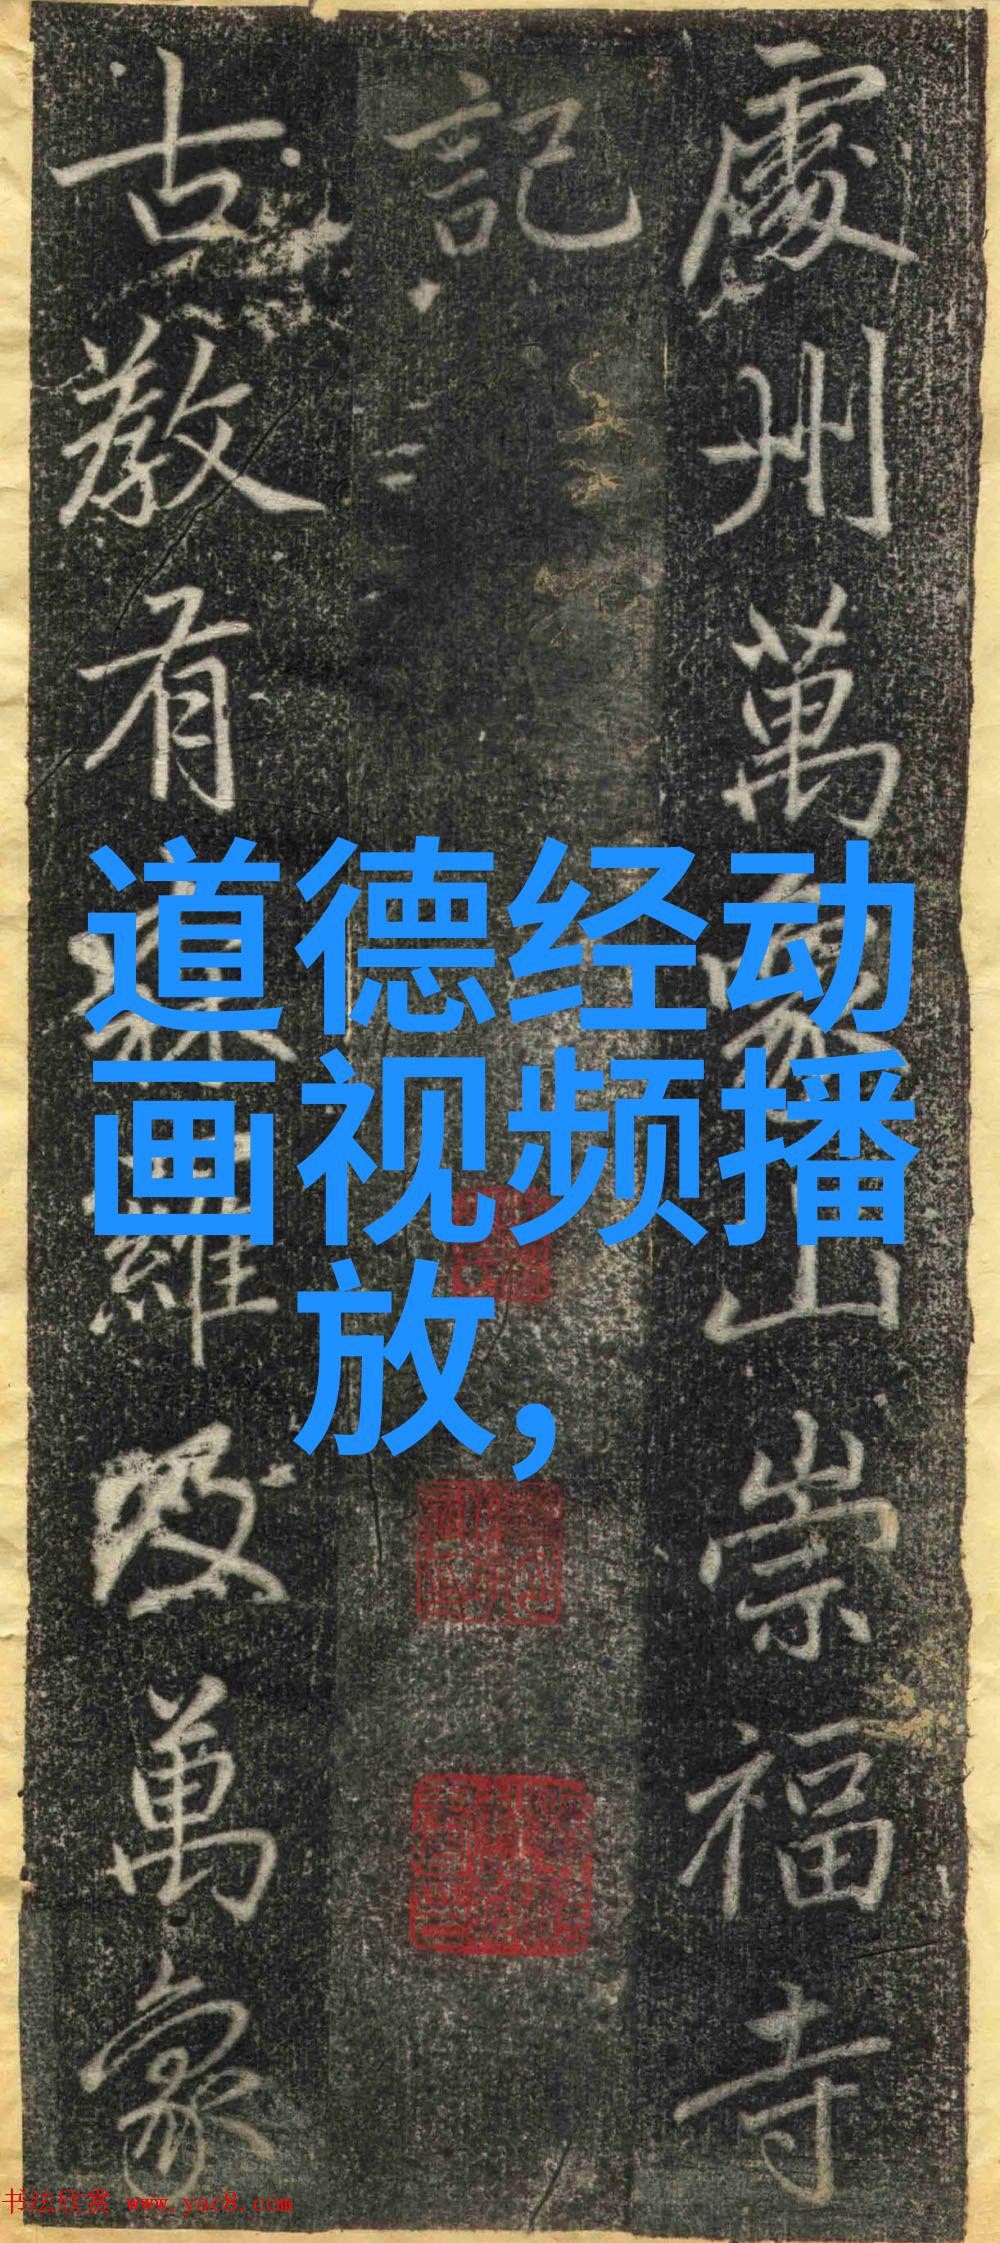 處州萬象山崇福寺
記
古教有森羅及萬象
道德经动
画视频播
放，
书法欣赏 www.yac8.com